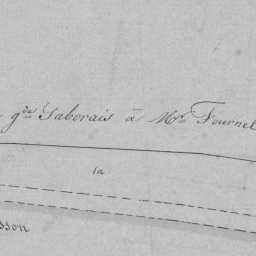 gde Gaborais à Mr Fournel
1a
sson